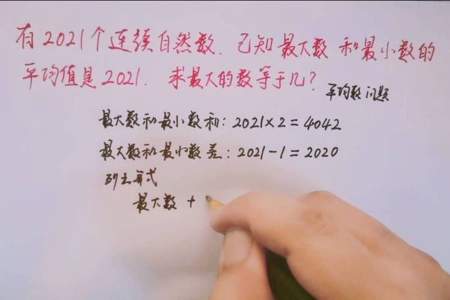 有2021个连续自然数.已知最大数和最小数的
平均值是2021.求最大的数等于几?
平均数问题
最大数和最小数和:2021×2=4042
最大数和最小数差:2021-1=2020
列竖式
最大数+